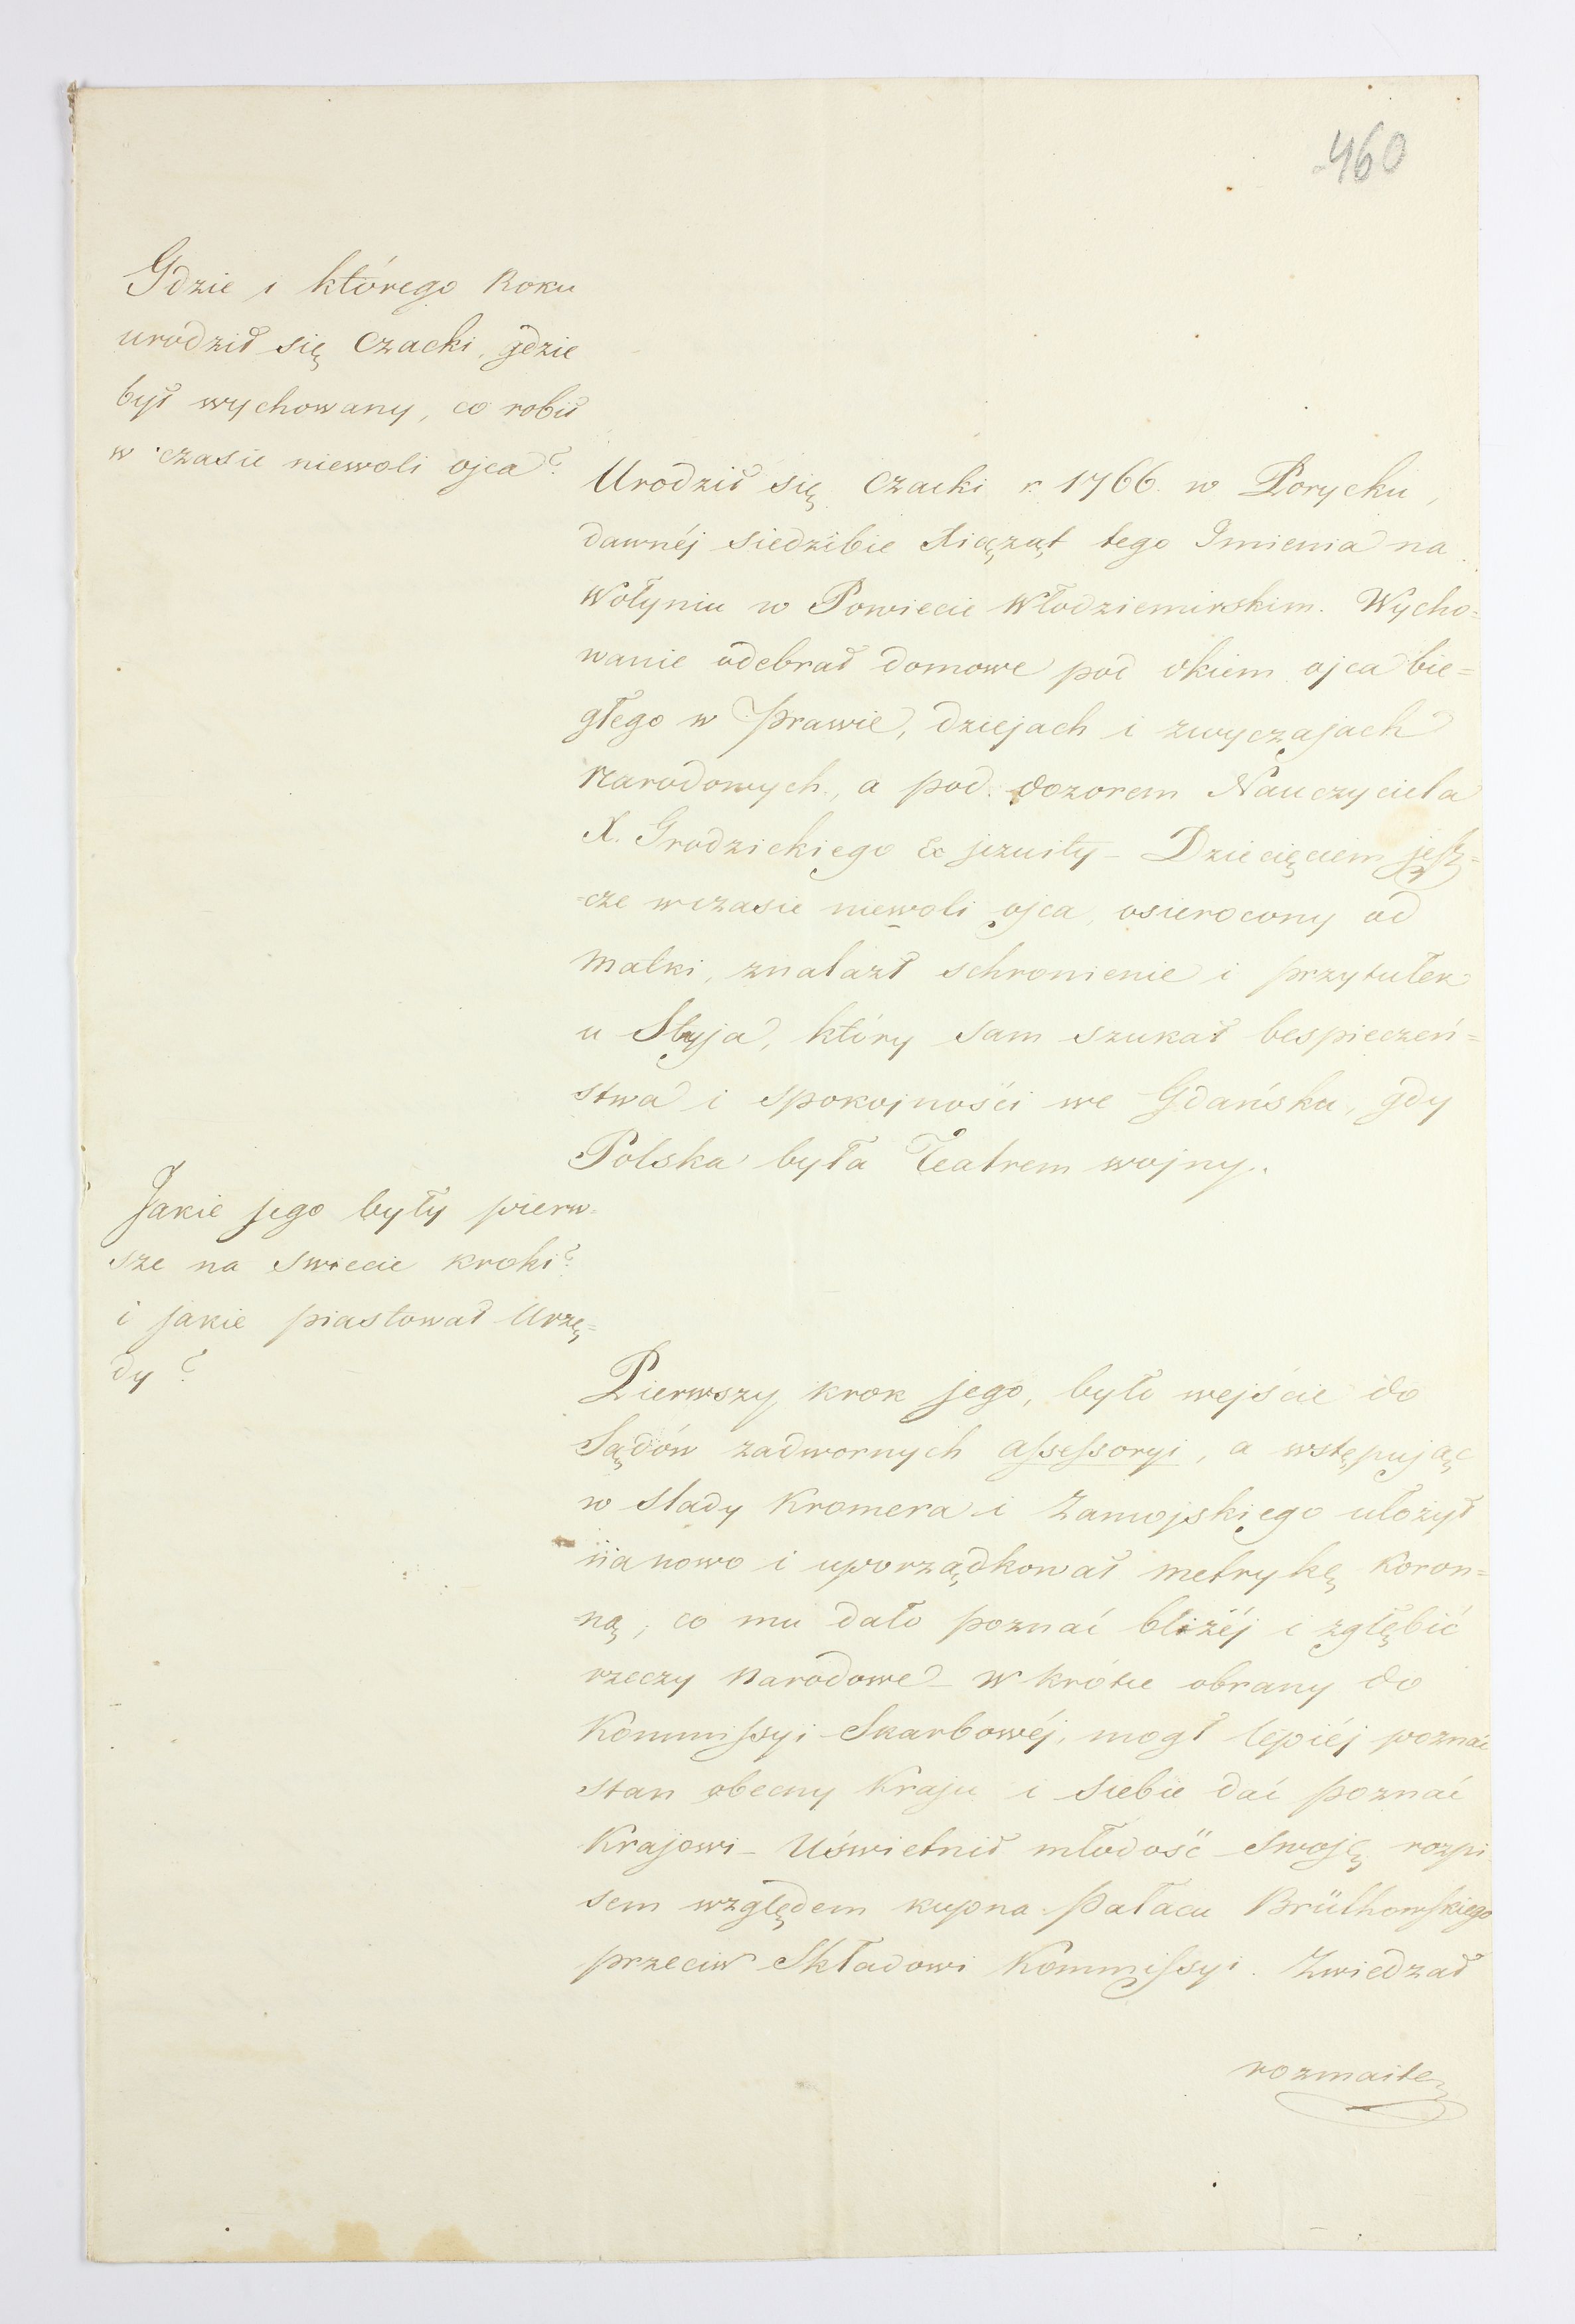 460
Gdzie i którego Roku
urodził się Czacki, gdzie
był wychowany, co robił
w czasie niewoli ojca?
Urodził się Czacki r. 1766. w Porycku,
dawnéj siedzibie Xiążąt tego Imienia na
Wołyniu w Powiecie Włodziemirskim. Wycho=
wanie odebrał domowe pod okiem ojca bie=
głego w Prawie, dziejach i zwyczajach
Narodowych, a pod dozorem Nauczyciela
X. Grodzickiego Ex jezuity - Dziecięciem jesz=
cze w czasie niewoli ojca, osierocony od
Matki, znalazł schronienie i przytułek
u Stryja, który sam szukał bespieczeń=
stwa i spokojności we Gdańsku, gdy
Polska była Teatrem wojny.
Jakie jego były pierw=
sze na swiecie kroki?
i jakie piastował Urzę=
dy?
Pierwszy krok jego, było wejście do
Sądów zadwornych assessoryi, a wstępując
w slady Kromera i Zamojskiego ułożył
na nowo i uporządkował metrykę Koron=
=ną, co mu dało poznać bliżéj i zgłębić
rzeczy Narodowe - W krótce obrany do
Kommissyi Skarbowéj, mogł lepiéj poznać
stan obecny Kraju i siebie dać poznać
Krajowi - Uświetnił młodość swoję rozpi
sem względem kupna Pałacu Brülhowskiego
przeciw Składowi Kommissyi. Zwiedzał
rozmaite